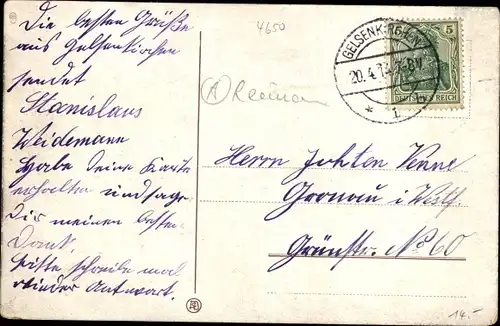 Die besten Grüße
aus Gelsenkirchen
sendet
Stanislaus
Weidemann
Habe deine Karte
erhalten und sage
Dir meinen besten
Dank.
bitte schreibe mal
wieder Antwort.
4650
GELSENKIRCHEN
20.4.
* 1 b
5
DEUTSCHES REICH
A
Herrn
Gronau i. Westf
Grünstr. No 60
14.-